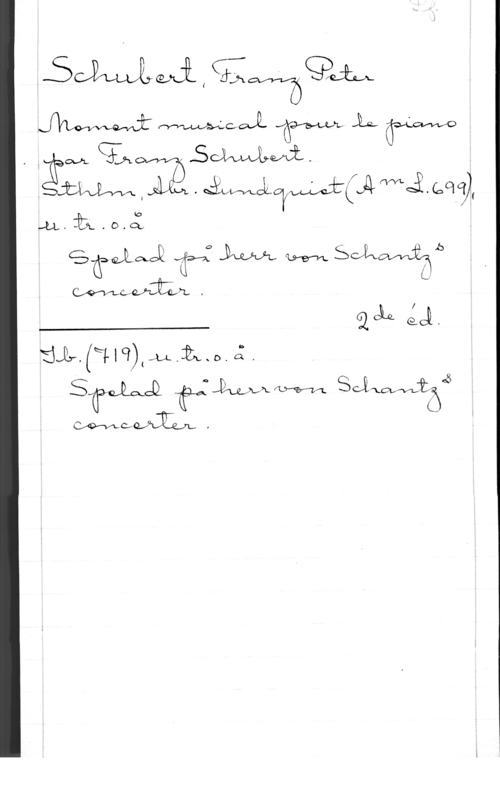 Schubert, Franz Peter
Moment musical pour le piano
par Franz Schubert.
Sthlm, Abr. Lundquist (A m L. 699),
u. tr. o. å
Spelad på herr von Schantzs
concerter.
2de éd.
Ib. (719), u. tr. o. å.
Spelad på herr von Schantzs
concerter.